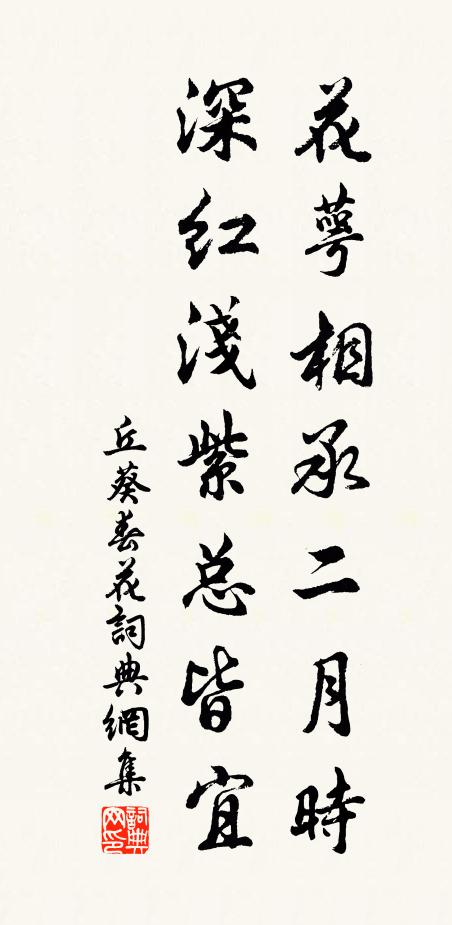 花萼相承二月時
深紅淺紫总皆宜
丘葵春花詞典網集
詞典网印